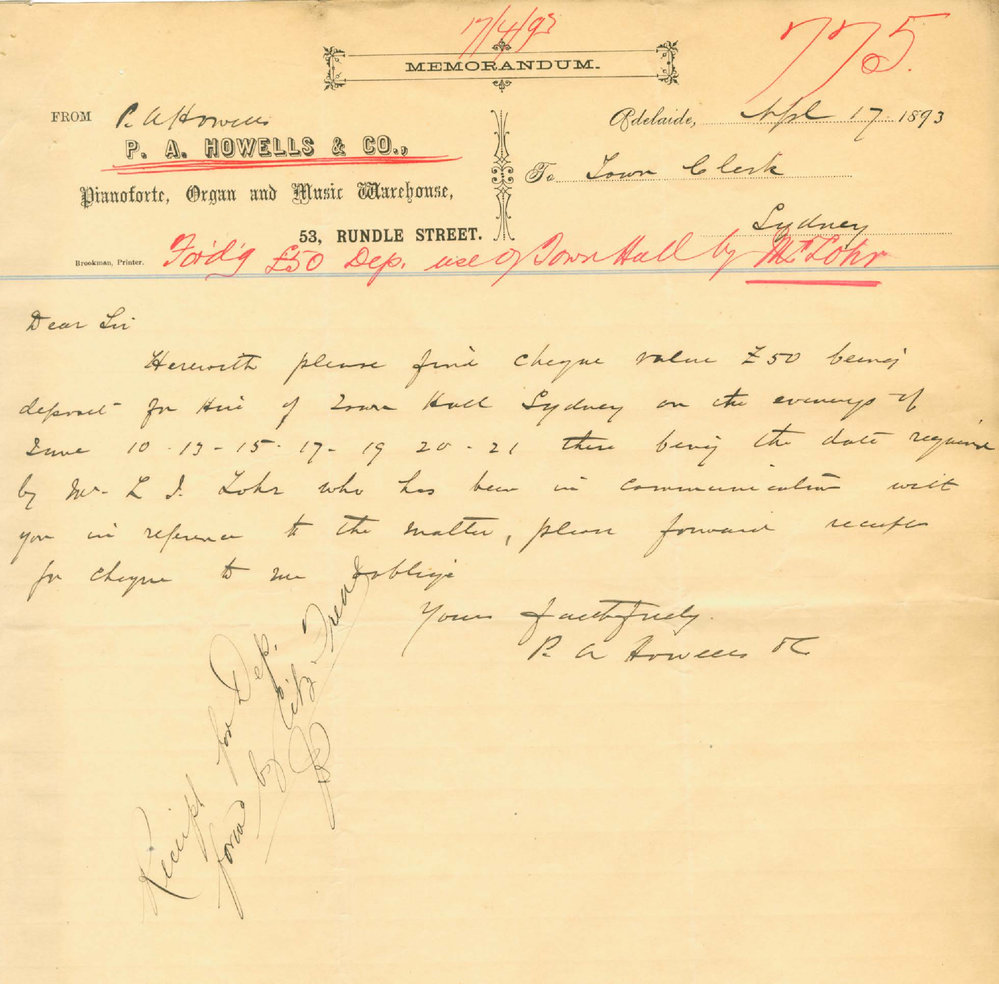 17/4/93
775.
MEMORANDUM.
FROM P. A Howells
P. A. HOWELLS & CO.,
Pianoforte, Organ and Music Warehouse,
53, RUNDLE STREET.
Brookman, Printer.
Adelaide, Apl 17 1893
To Town Clerk
Sydney
Ford'g £50 Dep. use of Town Hall by Mr Lohr
Dear Sir
Herewith please find cheque value £50 being
deposit for Hire of Town Hall Sydney on the evenings of
June 10-13-15-17-19 20-21 these being the date required
by Mr L J. Lohr who has been in communication with
you in reference to the matter, please forward receipt
for cheque to me & oblige
Yours faithfully.
P. A Howells &C
Receipt for Dep.
forwd by City Treas